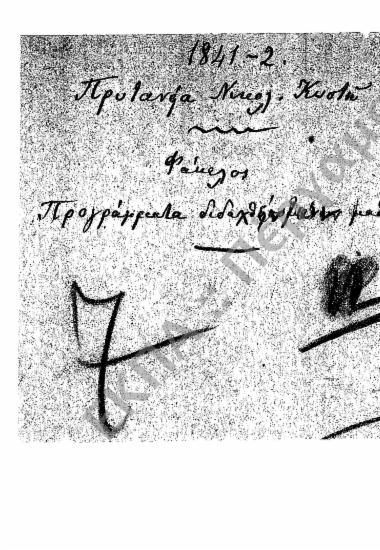 1841-2.
Πρυτανεία Νικολ. Κωστῆ
Φάκελος
Προγράμματα διδαχθέντων μαθ
7
ΕΚΠΑ :: Περγαμ